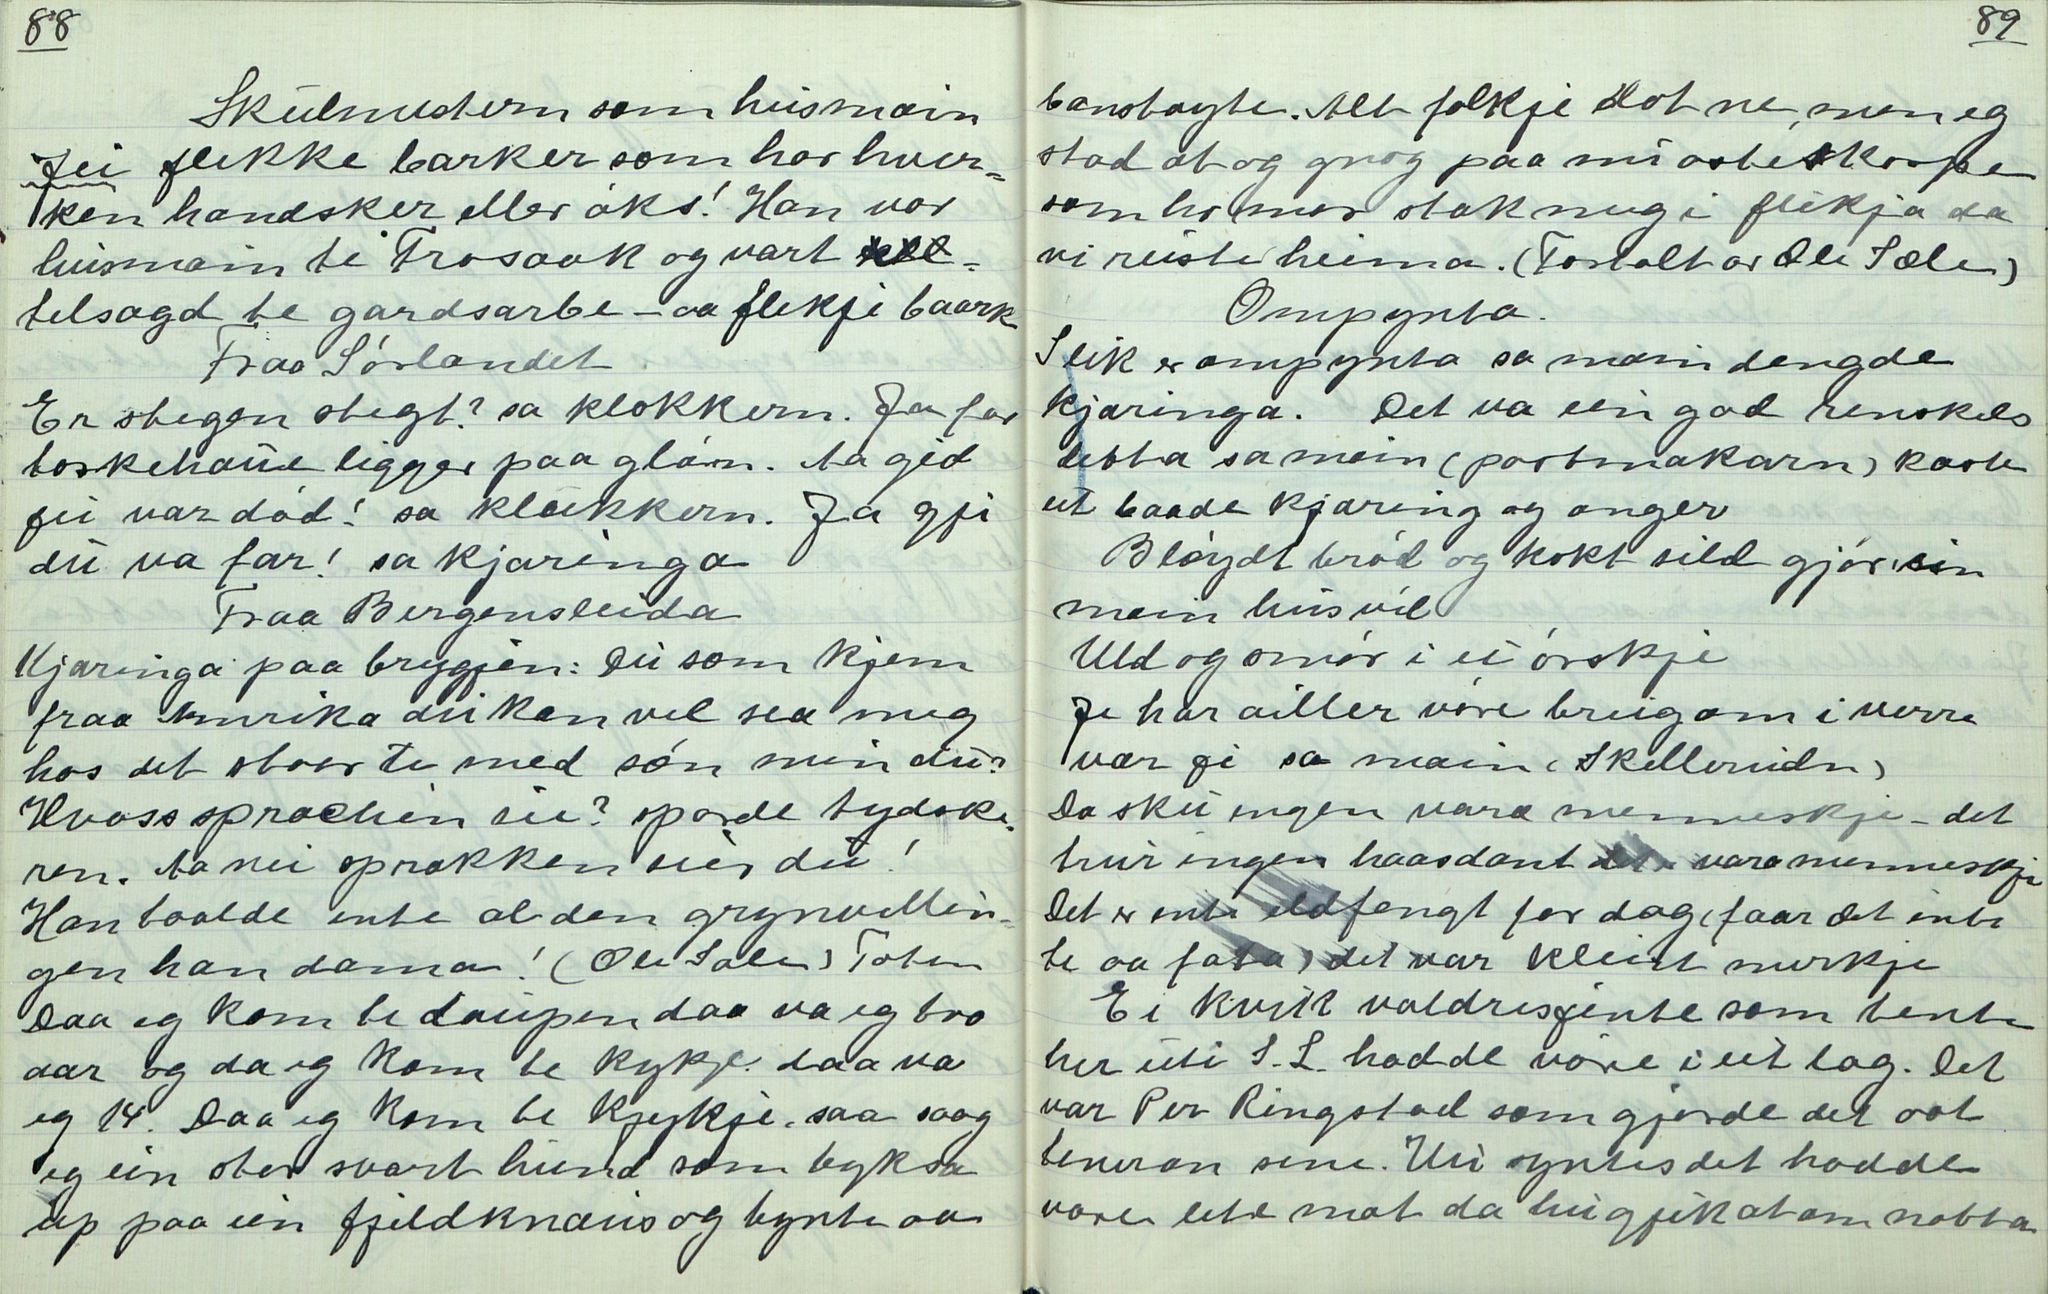 88
Skülmestern som hüsmain
Jei flekke barker som har hver-
ken handsker eller öks! Han var
hüsmain te Frosaak og vart
telsagd te gardsarbe - aa flekje baark
Fraa Sörlandet
Er stegen stegt? sa klokkern. Ja far
torskehaue ligger paa glörn. Aa gid
jei var död! sa klukkern. Ja gji
dü va far! sa kjæringa
Fraa Bergensleida
Kjæringa paa bryggjen: Dü som kjem
fraa Amerika dü kan vel sea meg
hos det staar te med sön min dü?
Hvass sprachen sie? sporde tydske-
ren. Aa nei sprakken seier dü!
Han toolde inte al den grynvellin-
gen han dama! (Ole Sæle) Toten
Daa eg kom te daupen daa va eg tvo
aar og da eg kom te kykje daa va
eg 14. Daa eg kom te kjykje saa saag
eg ein stor svart hünd som byksa
üp paa ein fjeldknaus og bynte aa

89
banstøyte. Alt folkje flot ne, men eg
stod at og gnog paa mi osteskorpe
som ho mor stak meg i flikja da
vi reiste heima. (Fortalt av Ole Sæle)
Ompynta.
Slik er ompynta sa main dengde
kjæringa. Det va ein god renskels
detta sa main (portmakarn) kaste
üt baade kjæring og onger
Blöydt bröd og kokt sild gjör ein
main hüsvil
Uld og smör i ei örskje
Je har ailler vöre brügom i verre
vær je sa main (Skellerüdn)
Da skü ingen vara menneskje - det
trur ingen haasdant vara menneskje
Det er inte eldfengt for dag (faar det inte
te aa fata) det var kleint nurkje
Ei kvik valdresjente som tente
her üti S. L. hadde vöre i eit lag. Det
var Per Ringstad som gjorde det aat
teneran sine. Hü syntes det hadde
vore lite mat da hü gjik at om natta